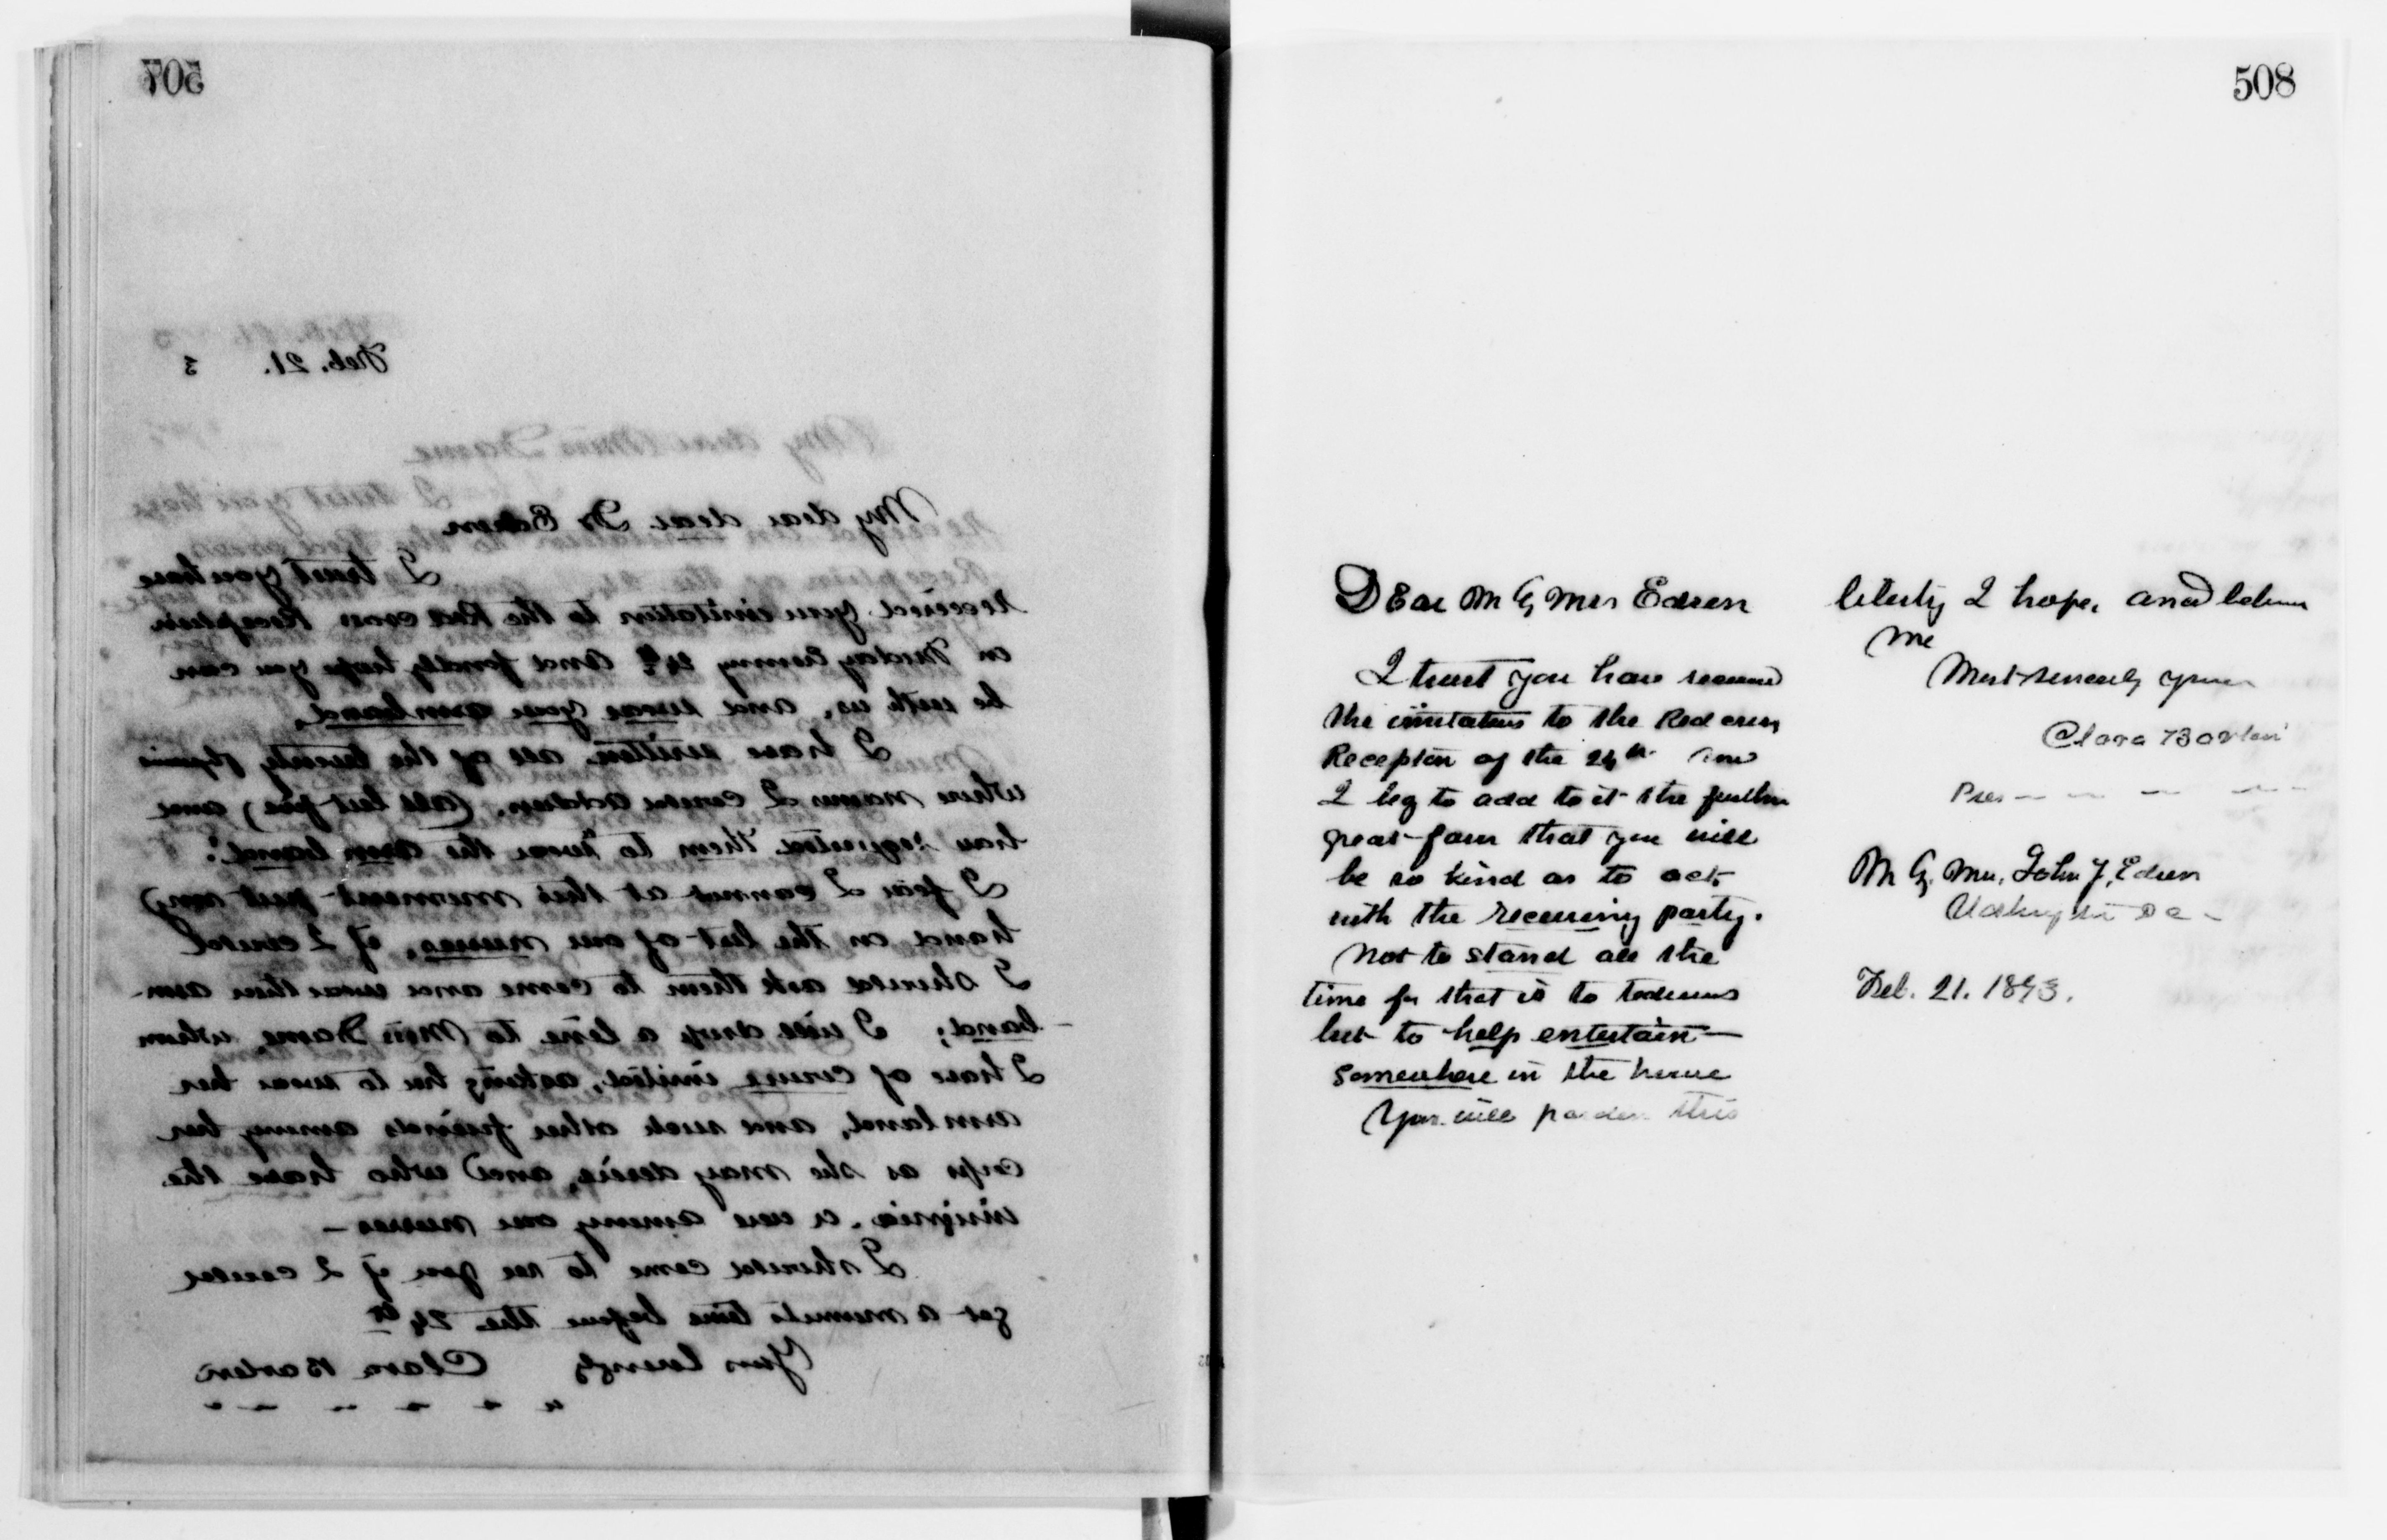 507
Feb. 21. 3
My dear dear Dr Edson
I trust you have
received your invitation to the Red cross Reception
on Friday evening 24th and fondly hope you can
be with us, and wear your arm band.
I have written all of the twenty
whose names I could address, (all but five) and
have requested them to wear the arm band.
I fear I cannot at this moment put any
hand on the list of our nurses, if I could
I should ask them to come and wear their arm-
band; I will drop a line to Miss Dame whom
I have of course invited, asking her to wear her
arm band, and such other friends among her
corps as she may desire, and who have the
insignia. as were among our nurses —
I should come to see you if I could
get a minutes time before the 24th
Yours lovingly Clara Barton
508
Dear Mr & Mrs Edson
I trust you have received
the invitations to the Red cross
Reception of the 24th. and
I beg to add to it the further
great favor that you will
be so kind as to act
with the receiving party.
Not to stand all the
time for that is to tedious
but to help entertain —
somewhere in the house
You will pardon this
liberty I hope, and believe
me
Most sincerely yours
Clara Barton
Pres — — — —
Mr & Mrs. John J. Edson
Washington D C -
Feb. 21. 1893.